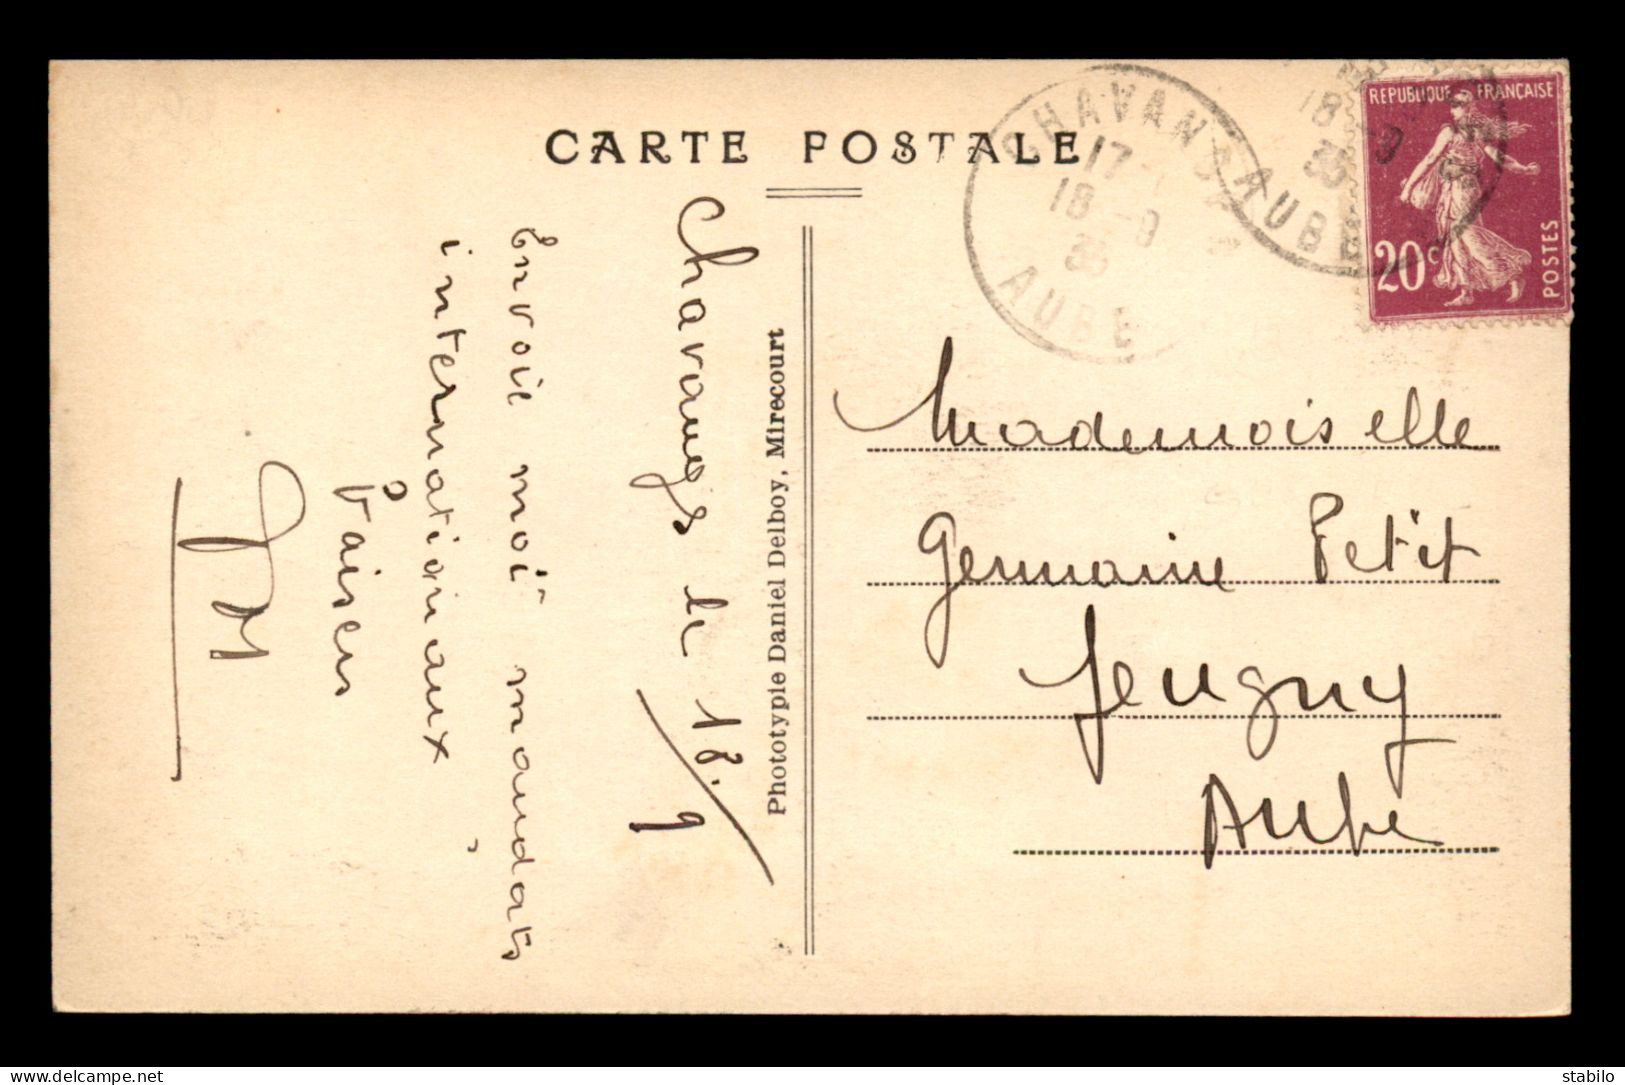 CARTE POSTALE
CHAVANGES
17
18-9
35
AUBE
18-9
35
AUBE
REPUBLIQUE FRANÇAISE
20c
POSTES
Chavanges le 18.9
Envoie moi mandats
internationaux
Baisers
Phototypie Daniel Delboy, Mirecourt
Mademoiselle
Germaine Petit
Jeugny
Aube
delcampe.net
stabilo